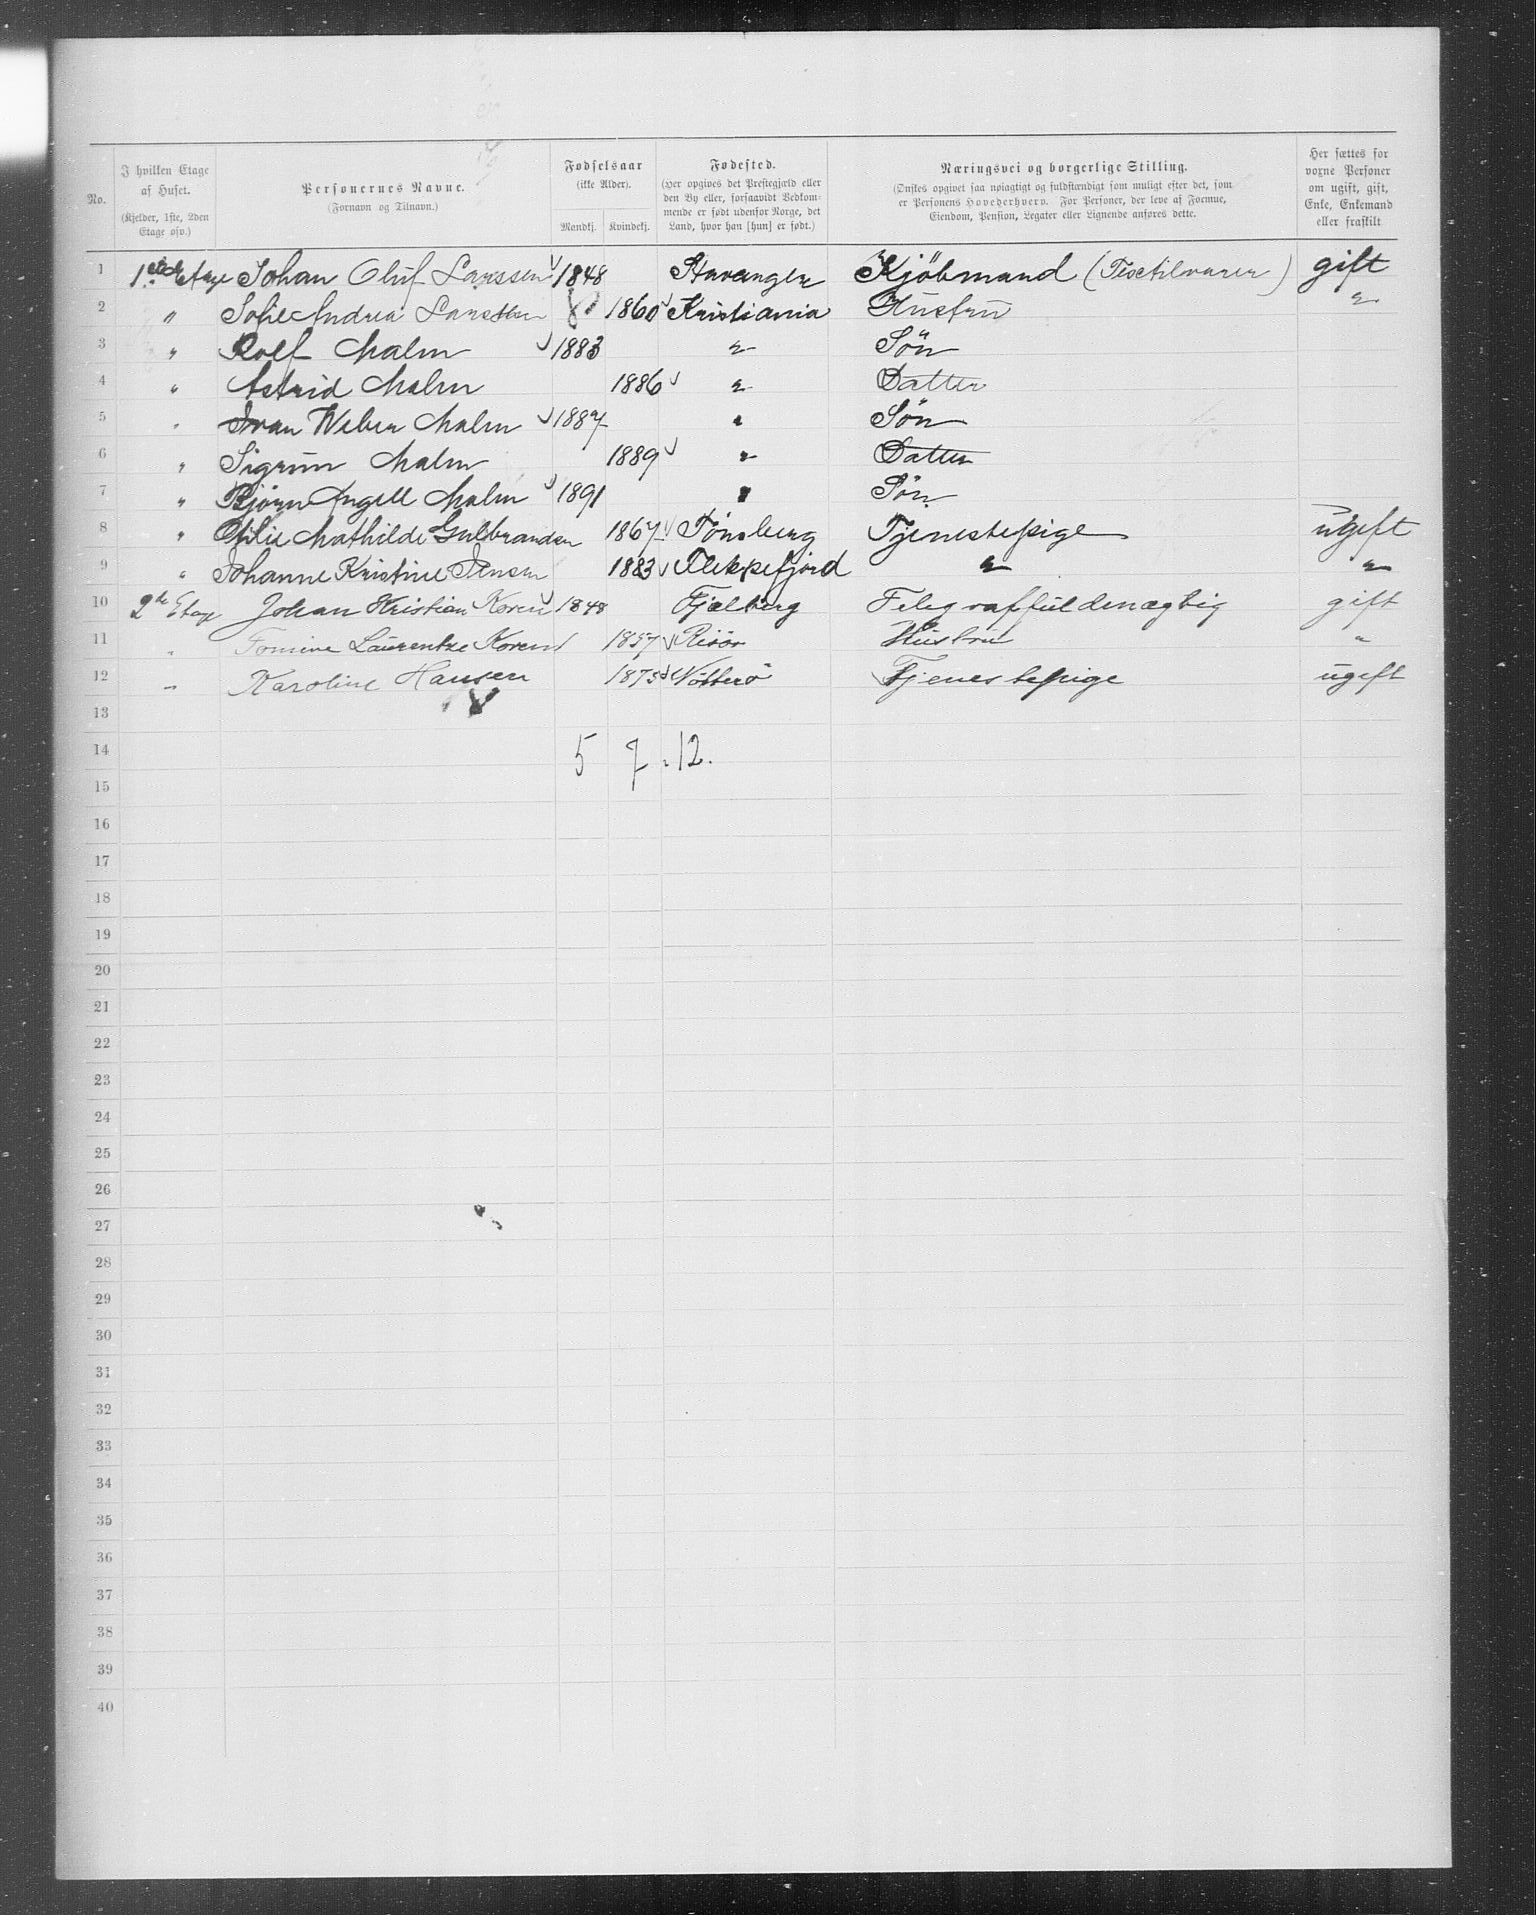 No. | I hvilken Etage af Huset. (Kjelder, 1ste, 2den Etage osv.) | Personernes Navne. (Fornavn og Tilnavn.) | Fødselsaar (ikke Alder). Mandkj. | Kvindekj. | Fødested. (Her opgives det Prestegjæld eller den By eller, forsaavidt Vedkommende er født udenfor Norge, det Land, hvor han [hun] er født.) | Næringsvei og borgerlige Stilling. (Ønskes opgivet saa nøiagtigt og fuldstændigt som muligt efter det, som er Personens Hovederhverv. For Personer, der leve af Formue, Eiendom, Pension, Legater eller Lignende anføres dette. | Her sættes for voxne Personer om ugift, gift, Enke, Enkemand eller fraskilt
1 | 1ste Etage | Johan Oluf Larssen | 1848 | | Stavanger | Kjöbmand (Textilvarer) | gift
2 | " | Sofie Andrea Larssen | | 1860 | Kristiania | Hustru | "
3 | " | Rolf Malm | 1883 | | " | Sön
4 | " | Astrid Malm | | 1886 | " | Datter
5 | " | Ivan Weber Malm | 1887 | | " | Sön
6 | " | Sigrun Malm | | 1889 | " | Datter
7 | " | Bjørn Angell Malm | 1891 | | " | Sön
8 | " | Otilie Mathilde Gulbrandsen | | 1867 | Tönsberg | Tjenestepige | ugift
9 | " | Johanne Kristine Jensen | | 1883 | Flekkefjord | " | "
10 | 2de Etage | Johan Kristian Koren | 1848 | | Fjælberg | Telegraffuldmægtig | gift
11 | " | Tomine Laurentze Koren | | 1857 | Risör | Hustru | "
12 | " | Karoline Hansen | | 1875 | Nötterö | Tjenestepige | ugift
13
14 | 5 7 . 12.
15
16
17
18
19
20
21
22
23
24
25
26
27
28
29
30
31
32
33
34
35
36
37
38
39
40